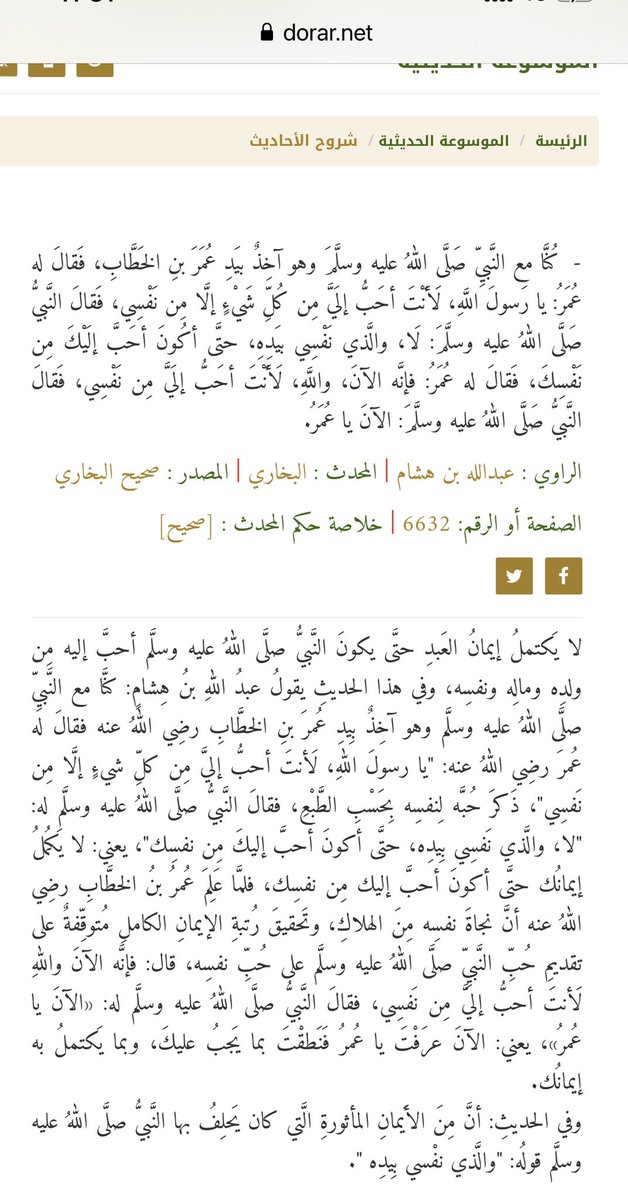 dorar.net
الموسوعة الحديثية
الرئيسة / الموسوعة الحديثية / شروح الأحاديث
- كُنَّا مع النَّبيِّ صَلَّى اللهُ عليه وسلَّمَ وهو آخِذٌ بيَدِ عُمَرَ بنِ الخَطَّابِ، فَقالَ له
عُمَرُ: يا رَسولَ اللَّهِ، لَأَنْتَ أحَبُّ إلَيَّ مِن كُلِّ شَيْءٍ إلَّا مِن نَفْسِي، فَقالَ النَّبيُّ
صَلَّى اللهُ عليه وسلَّمَ: لَا، والَّذي نَفْسِي بيَدِهِ، حتَّى أكُونَ أحَبَّ إلَيْكَ مِن
نَفْسِكَ، فَقالَ له عُمَرُ: فإنَّه الآنَ، واللَّهِ، لَأَنْتَ أحَبُّ إلَيَّ مِن نَفْسِي، فَقالَ
النَّبيُّ صَلَّى اللهُ عليه وسلَّمَ: الآنَ يا عُمَرُ.
الراوي : عبدالله بن هشام | المحدث : البخاري | المصدر : صحيح البخاري
الصفحة أو الرقم: 6632 | خلاصة حكم المحدث : [صحيح]
لا يَكتملُ إيمانُ العَبدِ حتَّى يكونَ النَّبيُّ صلَّى اللهُ عليه وسلَّم أحبَّ إليه مِن
ولدِه ومالِه ونفسِه، وفي هذا الحديثِ يقولُ عبدُ اللهِ بنُ هِشامٍ: كنَّا مع النَّبيِّ
صلَّى اللهُ عليه وسلَّم وهو آخِذٌ بِيدِ عُمرَ بنِ الخطَّابِ رضِي اللهُ عنه فقالَ لَه
عُمرَ رضِي اللهُ عنه: "يا رسولَ اللهِ، لَأنتَ أحبُّ إليَّ مِن كلِّ شيءٍ إلَّا مِن
نَفسي"، ذَكرَ حُبَّه لِنفسِه بِحَسْبِ الطَّبْعِ، فقالَ النَّبيُّ صلَّى اللهُ عليه وسلَّم له:
"لا، والَّذي نَفسي بِيدِه، حتَّى أكونَ أحبَّ إليكَ مِن نفسِك"، يعني: لا يَكمُلُ
إيمانُك حتَّى أكونَ أحبَّ إليك مِن نفسِك، فلمَّا عَلِمَ عُمرُ بنُ الخطَّابِ رضِي
اللهُ عنه أنَّ نجاةَ نفسِه مِنَ الهلاكِ، وتَحقيقَ رُتبةِ الإيمانِ الكاملِ مُتوقِّفةٌ على
تقديمِ حُبِّ النَّبيِّ صلَّى اللهُ عليه وسلَّم على حُبِّ نفسِه، قال: فإنَّه الآنَ واللهِ
لَأنتَ أحبُّ إليَّ مِن نَفسِي، فقالَ النَّبيُّ صلَّى اللهُ عليه وسلَّم له: «الآنَ يا
عُمرُ»، يعني: الآنَ عرَفْتَ يا عُمرُ فَنَطقْتَ بما يَجبُ عليكَ، وبما يَكتملُ به
إيمانُك.
وفي الحديثِ: أنَّ مِنَ الأيمانِ المأثورةِ الَّتي كان يَحلِفُ بها النَّبيُّ صلَّى اللهُ عليه
وسلَّم قولُه: "والَّذي نفْسي بِيدِه ".